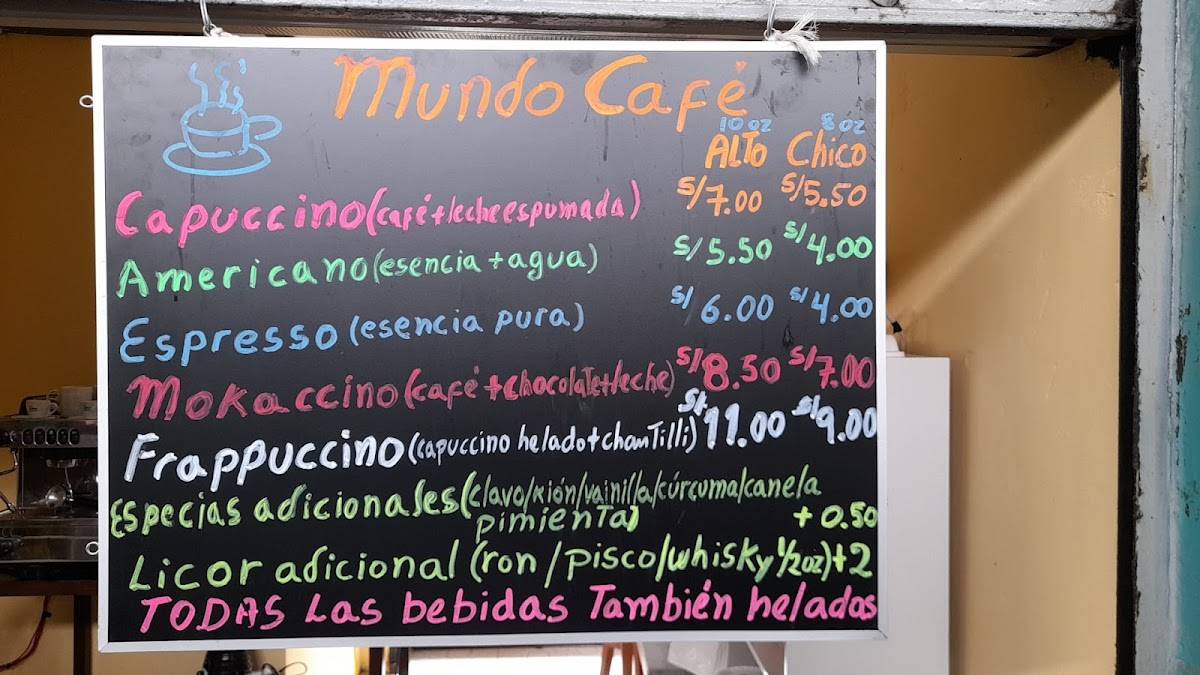 Mundo Café
10 oz 8 oz
ALTO Chico
Capuccino (café+leche espumada) S/7.00 S/5.50
Americano (esencia + agua) S/5.50 S/4.00
Espresso (esencia pura) S/6.00 S/4.00
Mokaccino (café+chocolate+leche) S/8.50 S/7.00
Frappuccino (capuccino helado+chantilli) S/.11.00 S/.9.00
Especias adicionales (clavo/kión/vainilla/cúrcuma/canela
pimienta) + 0.50
Licor adicional (ron/pisco/whisky 1/2oz) +2
TODAS Las bebidas También helados